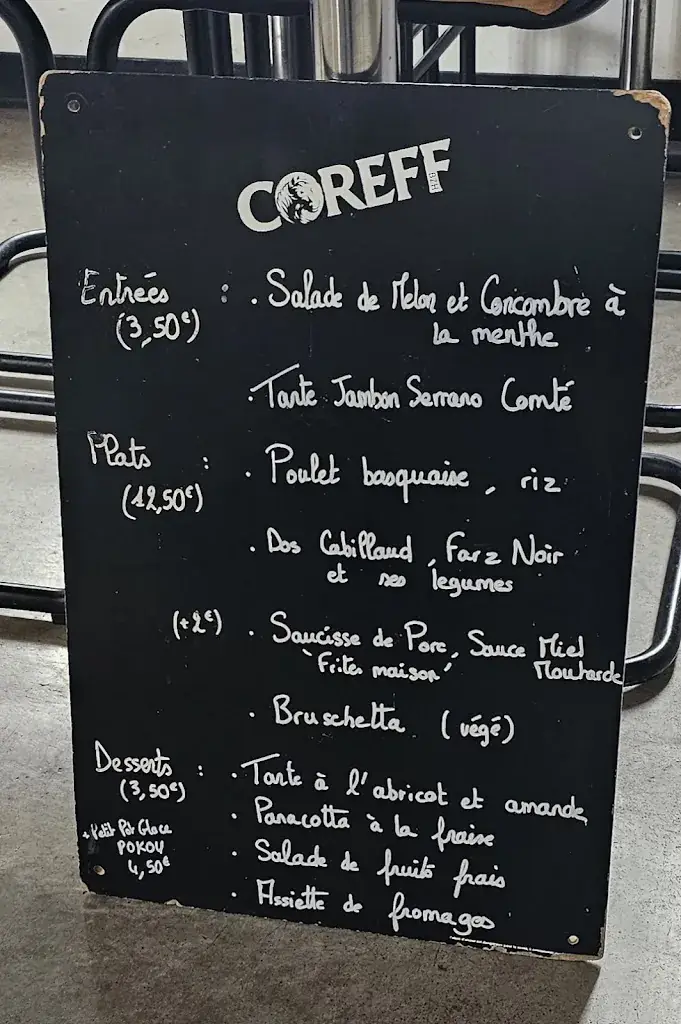 COREFF
BZH
Entrées : . Salade de Melon et Concombre à
(3,50€) la menthe
. Tarte Jambon Serrano Comté
Plats : . Poulet basquaise, riz
(12,50€)
. Dos Cabillaud, Farz Noir
et ses légumes
(+2€) . Saucisse de Porc, Sauce Miel
"Frites maison" Moutarde
. Bruschetta (végé)
Desserts : . Tarte à l'abricot et amande
(3,50€) . Panacotta à la fraise
+ Petit Pôt Glace . Salade de fruits frais
POKOU
4,50€ . Assiette de fromages